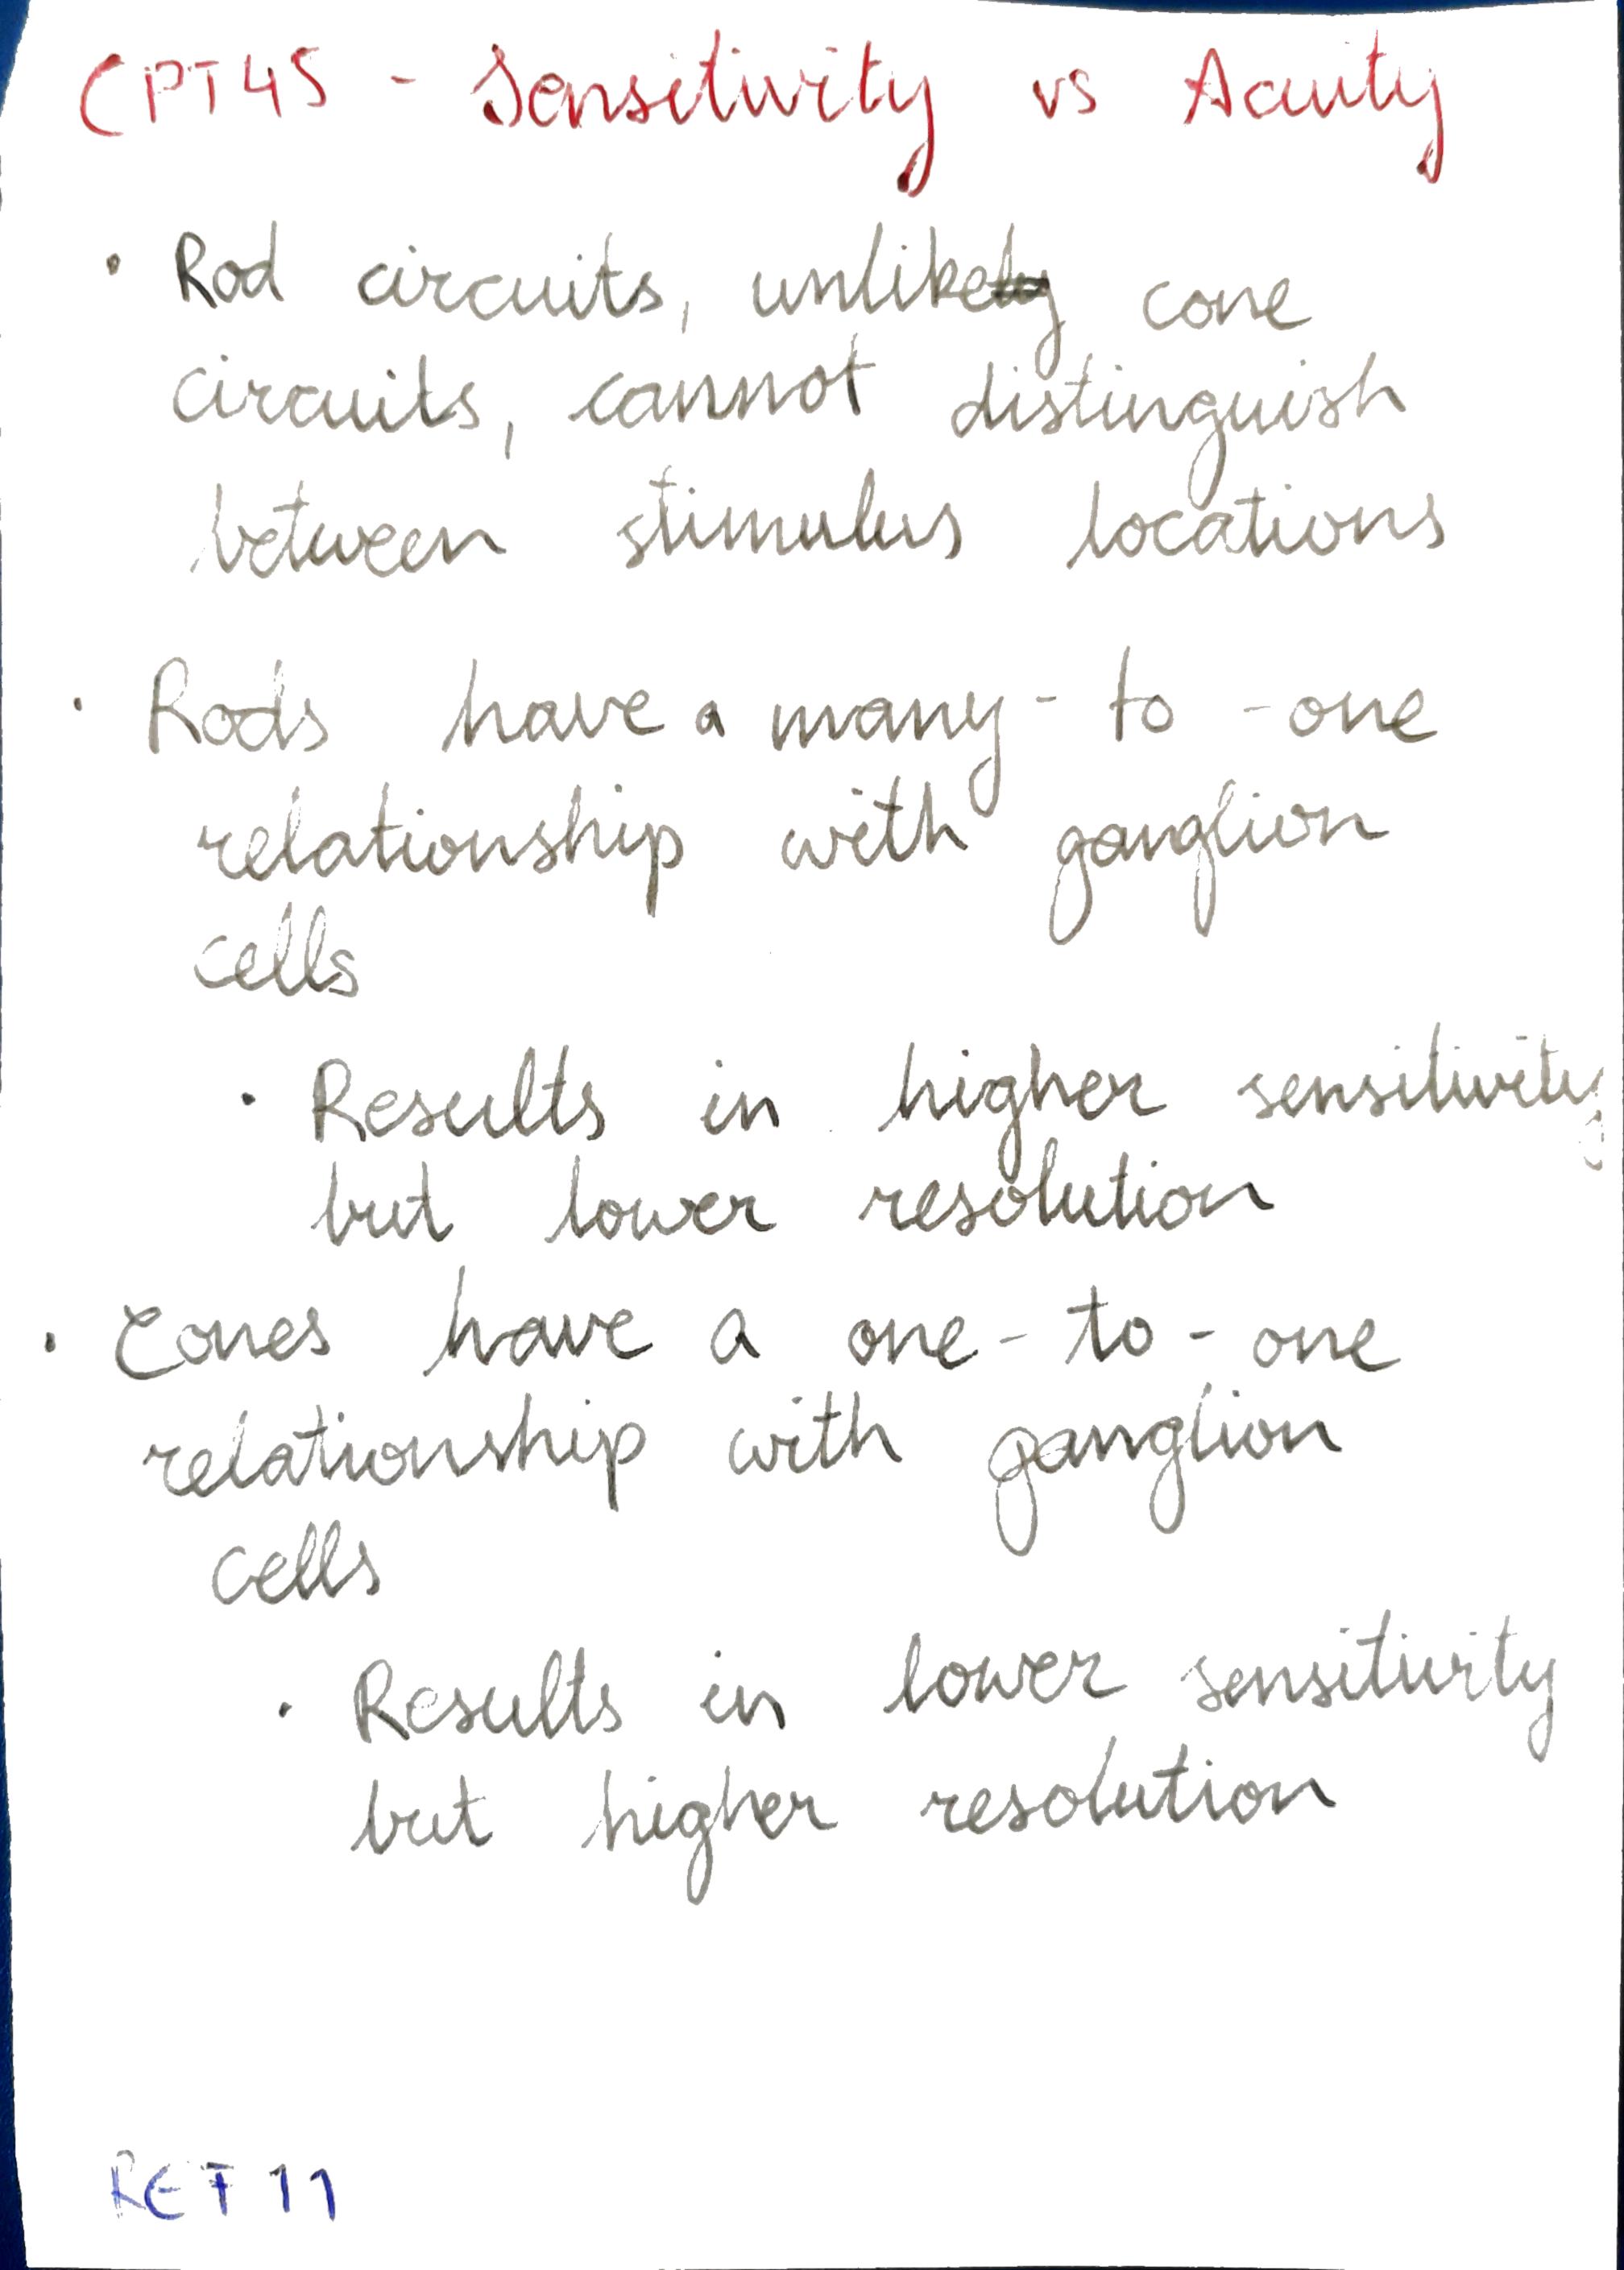 CPT45 - Sensitivity vs Acuity
• Rod circuits, unlike cone
circuits, cannot distinguish
between stimulus locations
• Rods have a many-to-one
relationship with ganglion
cells
• Results in higher sensitivity
but lower resolution
• Cones have a one-to-one
relationship with ganglion
cells
• Results in lower sensitivity
but higher resolution
RET 11